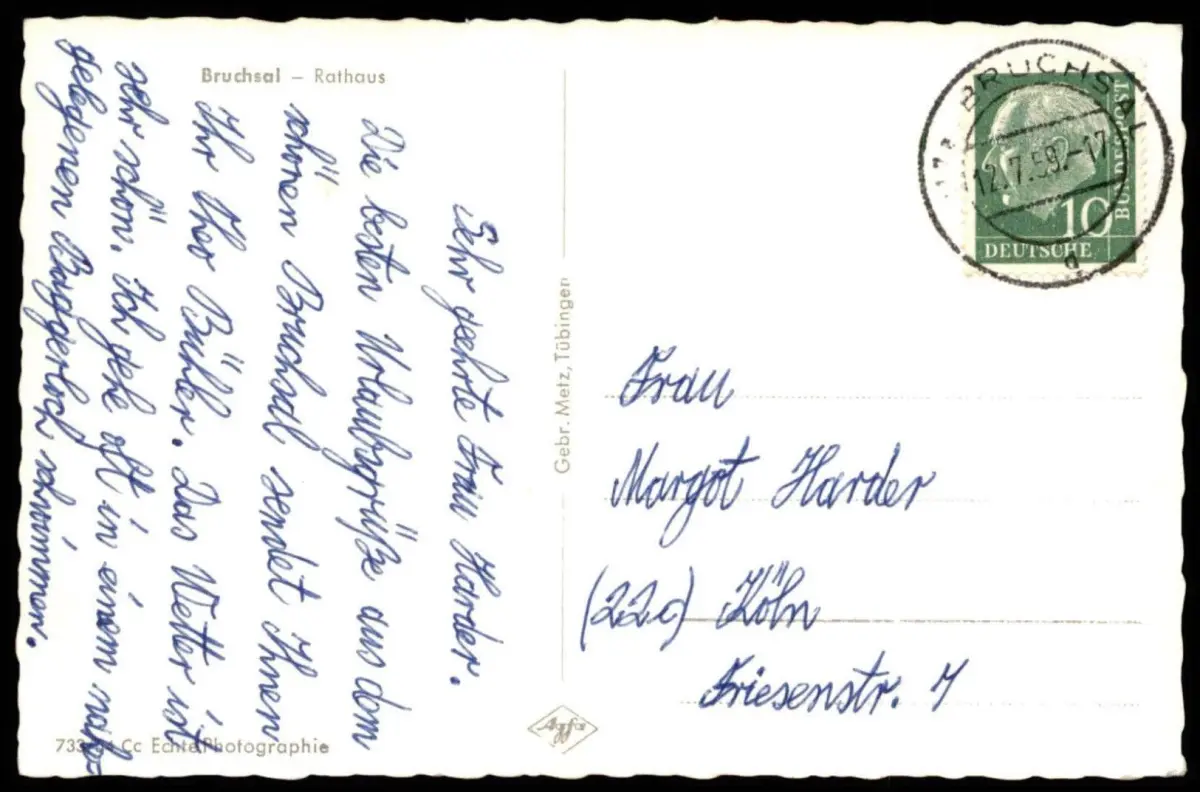 Bruchsal – Rathaus
Sehr geehrte Frau Harder.
Die besten Urlaubsgrüße aus dem
schönen Bruchsal sendet Ihnen
Ihr Bühler. Das Wetter ist
sehr schön. Ich gehe oft in einem nah-
gelegenen Baggerloch schwimmen.
733 Cc Echte Photographie
Gebr. Metz, Tübingen
Agfa
BRUCHSAL
12.7.59.-17
a
10
DEUTSCHE
BUNDESPOST
Frau
Margot Harder
(22c) Köln
Friesenstr. 7